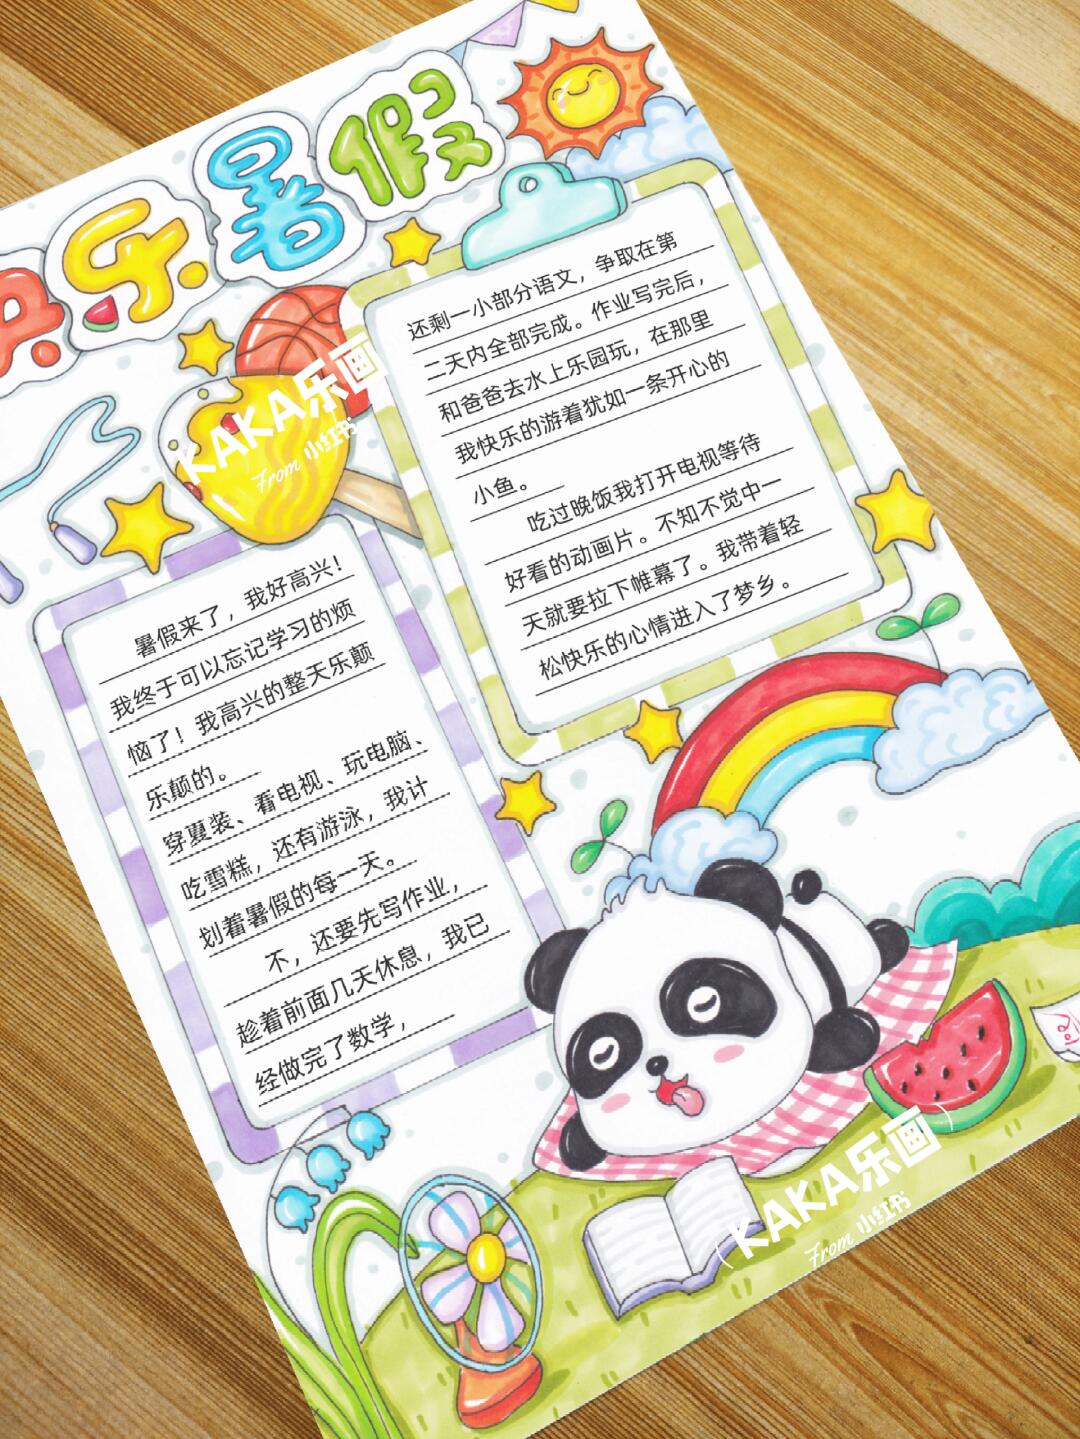 快乐暑假
暑假来了，我好高兴！
我终于可以忘记学习的烦
恼了！我高兴的整天乐颠
乐颠的。
穿夏装、看电视、玩电脑、
吃雪糕，还有游泳，我计
划着暑假的每一天。
不，还要先写作业，
趁着前面几天休息，我已
经做完了数学，
还剩一小部分语文，争取在第
二天内全部完成。作业写完后，
和爸爸去水上乐园玩，在那里
我快乐的游着犹如一条开心的
小鱼。
吃过晚饭我打开电视等待
好看的动画片。不知不觉中一
天就要拉下帷幕了。我带着轻
松快乐的心情进入了梦乡。
KAKA乐画
From 小红书
KAKA乐画
From 小红书